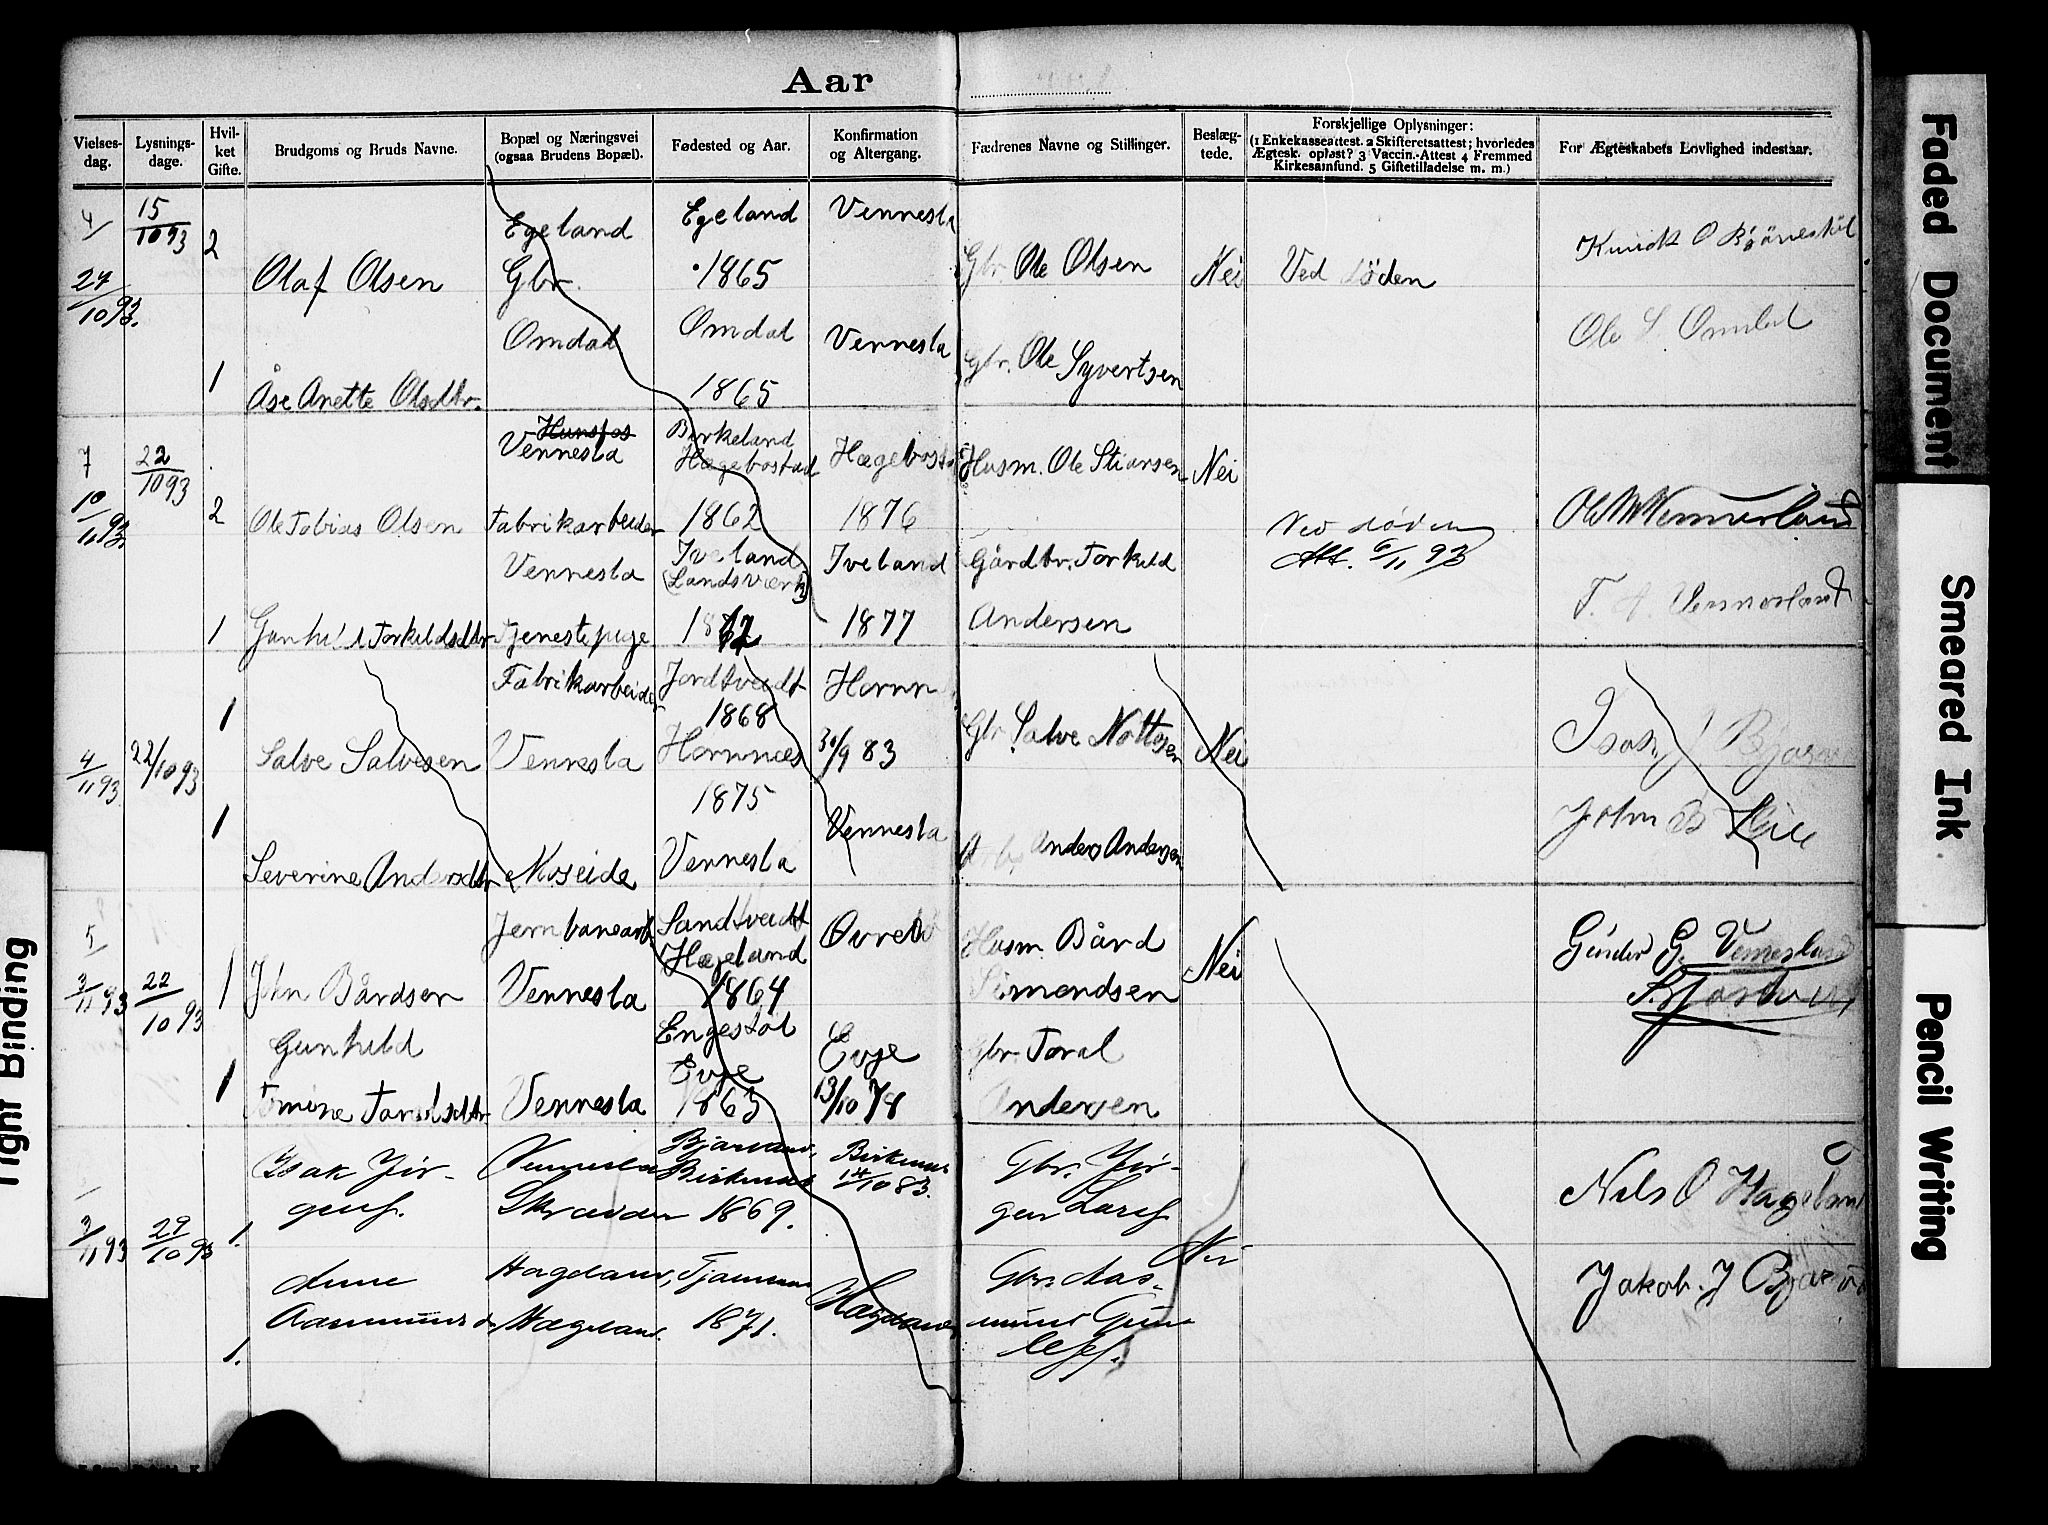 Aar
Vielsesdag.
Lysningsdage.
Hvilket Gifte.
Brudgoms og Bruds Navne.
Bopæl og Næringsvei (ogsaa Brudens Bopæl).
Fødested og Aar.
Konfirmation og Altergang.
Fædrenes Navne og Stillinger.
Beslægtede.
Forskjellige Oplysninger:
(1 Enkekasseattest. 2 Skifteretsattest; hvorledes
Ægtesk. opløst? 3 Vaccin.-Attest 4 Fremmed
Kirkesamfund. 5 Giftetilladelse m. m.)
For Ægteskabets Lovlighed indestaar.
4/ 15/10 93 Egeland Egeland Vennesla
27/10 93. 2 Olaf Olsen Gbr. 1865 Gbr Ole Olsen Nei Ved Döden
Omdal Omdal Vennesla Ole S. Omdal
1 Åse Anette Olsdtr. 1865 Gbr. Ole Syvertsen
Hunsfos Birkeland
7 22/10 93 Vennesla Hægebostad Hægebost Husm. Ole Stiansen Nei
10/11 93. 2 Ole Tobias Olsen Fabrikarbeider 1862 1876 Ved döden
Vennesla Iveland Iveland Gårdbr. Torkild Att. 6/11 93
(Landsværk)
1 Gunhild Torkildsdtr Tjenestepige 1877 Andersen T. A. Vennesland
Fabrikarbeider Jordtveidt Hornn
1 1868
4/11 93 22/10 93 Salve Salvesen Vennesla Hornnæs 30/9 83 Gbr Salve Nottosen Nei
1875
1 Vennesla John B
Severine Andersdtr Moseide Vennesla Anders Andersen
5 Jernbanearb. Sandtveidt Øvrebø Husm. Bård Nei
Hægeland
3/11 93 22/10 93 1 John Bårdsen Vennesla 1864 Simondsen
Gunhild Engestöl Evje Gbr Toral
Evje
1 Tomine Taralsdtr Vennesla 1863 13/10 78 Andersen
Isak Jör- Vennesla Birkenes 14/10 83. Gbr. Jör- Nils O Hægeland
gens. 1869. gen Lars
3/11 93 29/10 93 1. Nei
Anne Gbr. Aas- Jakob. J
Aasmunds d. Hægeland. 1871. Hægeland mund Gun
1. lefs.
Faded Document
Smeared Ink
Pencil Writing
Tight Binding